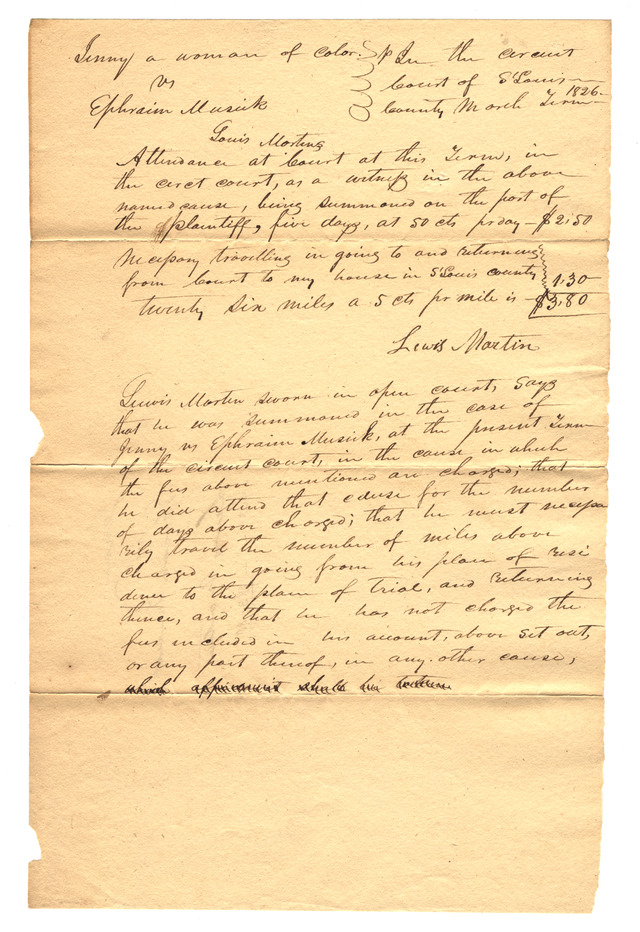 Jenny a woman of color In the circuit
vs Court of St Louis
Ephraim Musick County March Term 1826
Louis Martins
Attendance at Court at this Term, in
the circt court, as a witness in the above
named cause, being summoned on the part of
the plaintiff, five days, at 50 cts pr day - $2.50
Necessary travelling in going to and returning
from Court to my house in St Louis county 1.30
twenty six miles a 5 cts pr mile is $3.80
Lewis Martin
Lewis Martin sworn in open court, says
that he was summoned in the case of
Jenny vs Ephraim Musick, at the present Term
of the circuit court, in the cause in which
the fees above mentioned are charged; that
he did attend that cause for the number
of days above charged; that he must necessa
rily travel the number of miles above
charged in going from his place of resi
dence to the place of trial, and returning
thence, and that he has not charged the
fees included in his account, above set out,
or any part thereof, in any other cause,
which